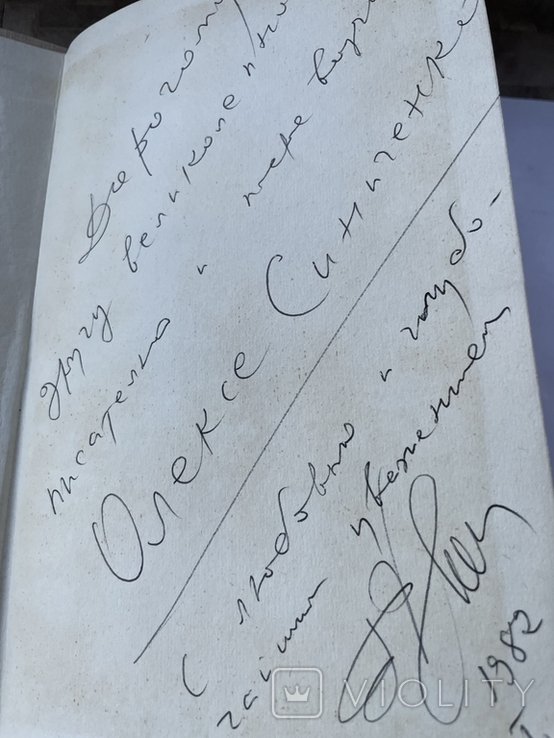 Дорогому
другу великолепно
писателю и
Олексе Синиченке
С любовью и глубо-
чайшим уважением
1982
VIOLITY